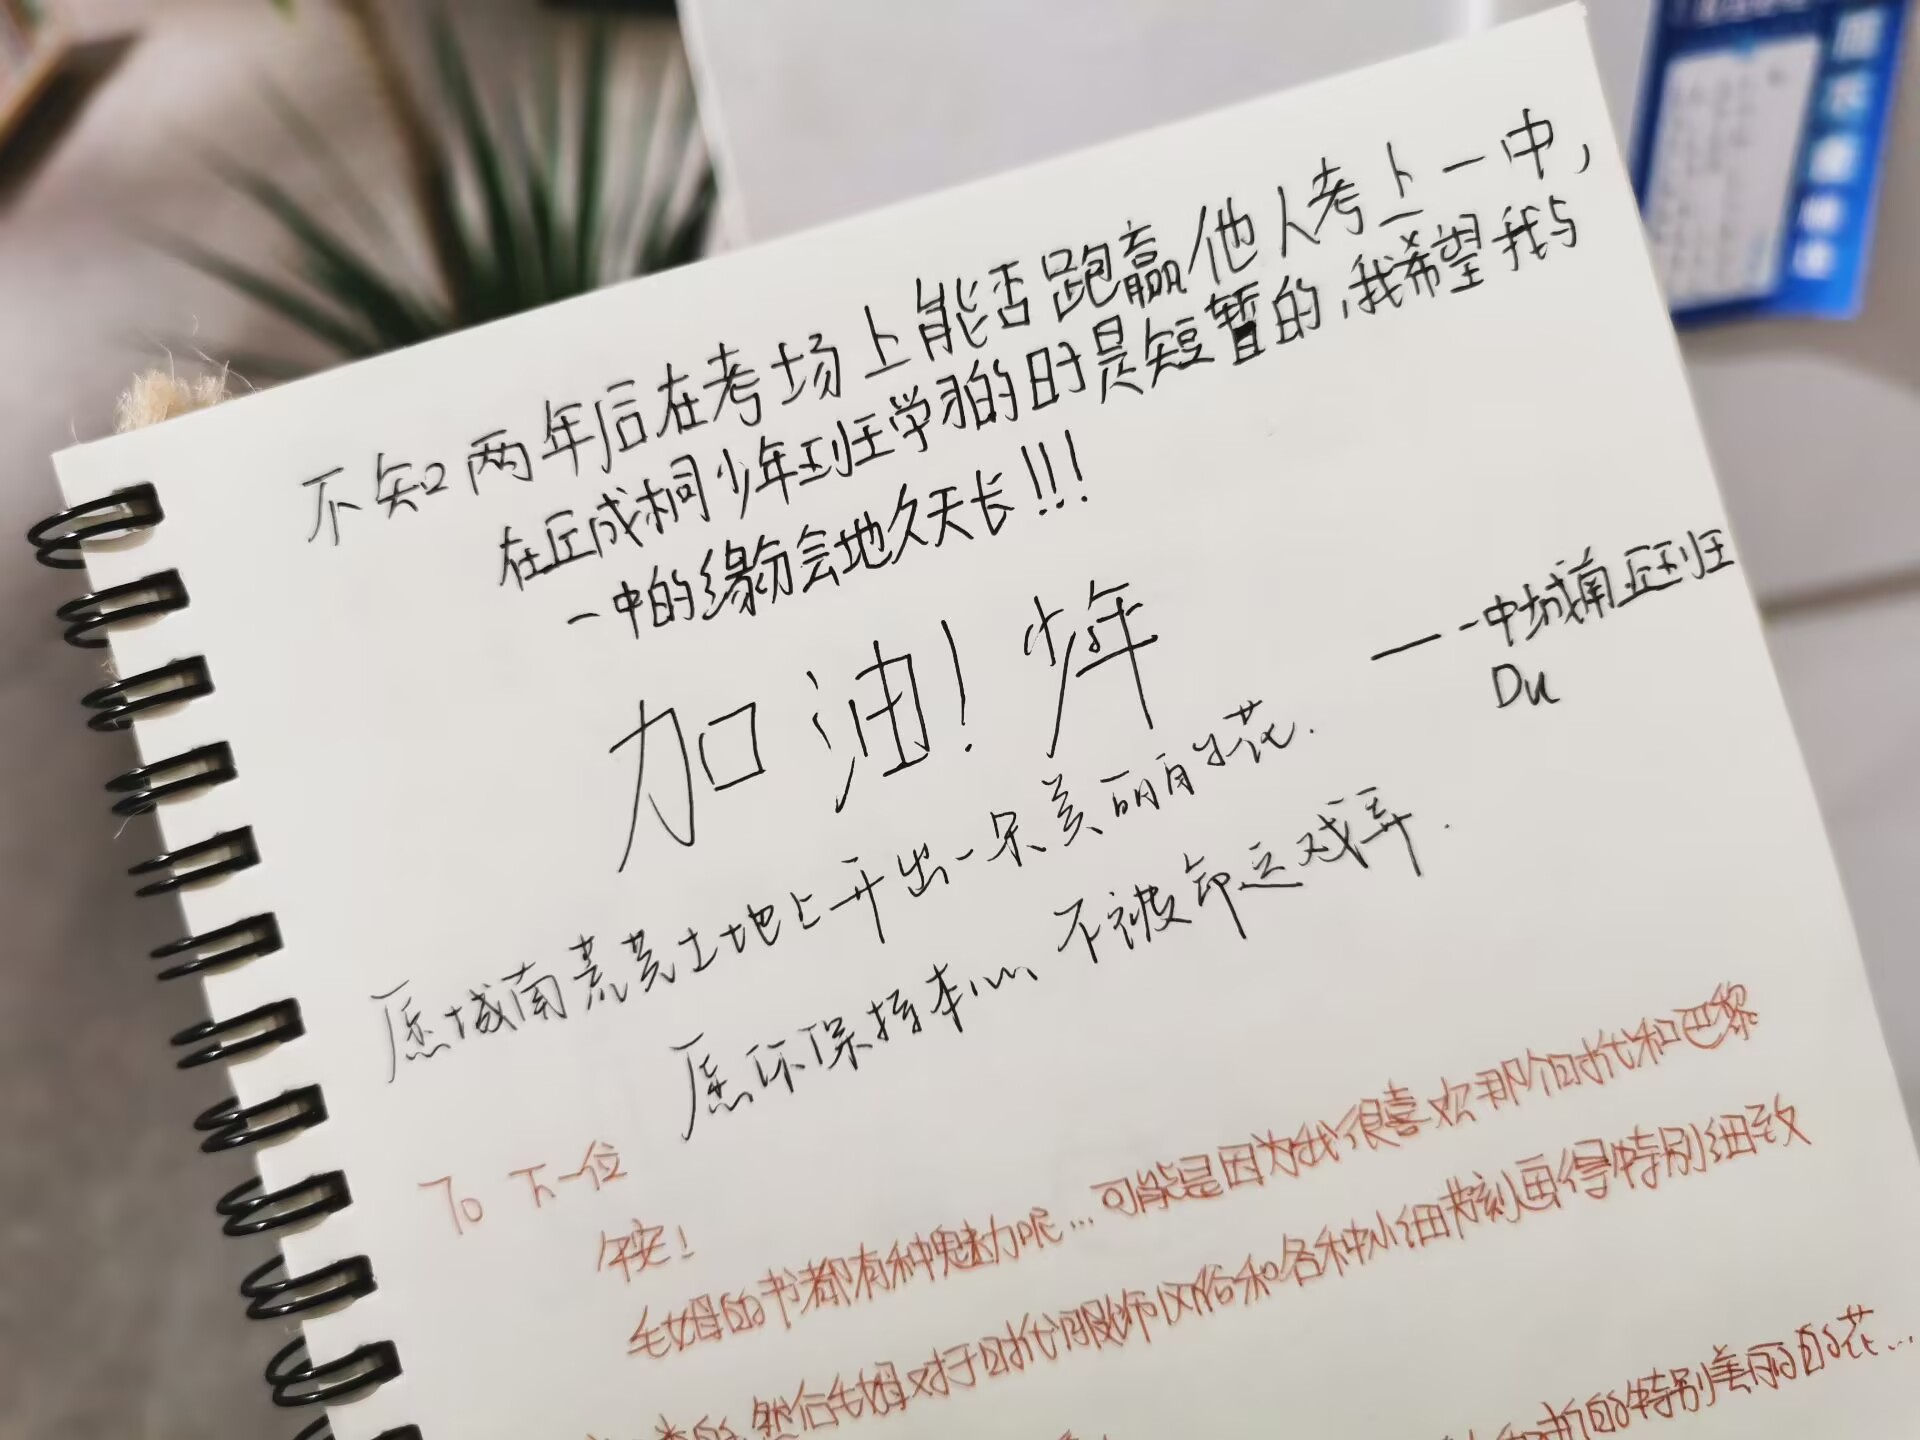 不知两年后在考场上能否跑赢他人考上一中,
在丘成桐少年班学习的时是短暂的,我希望我与
一中的缘分会地久天长!!!
——一中城南丘班
Du
加油!少年
愿城南荒芜土地上开出一朵美丽的花.
愿你保持本心、不被命运戏弄.
To 下一位
午安!
毛姆的书都有种魅力呢...可能是因为我很喜欢那个时代和巴黎
然后毛姆对于时代服饰风俗和各种小细节刻画得特别细致
特别美丽的花...